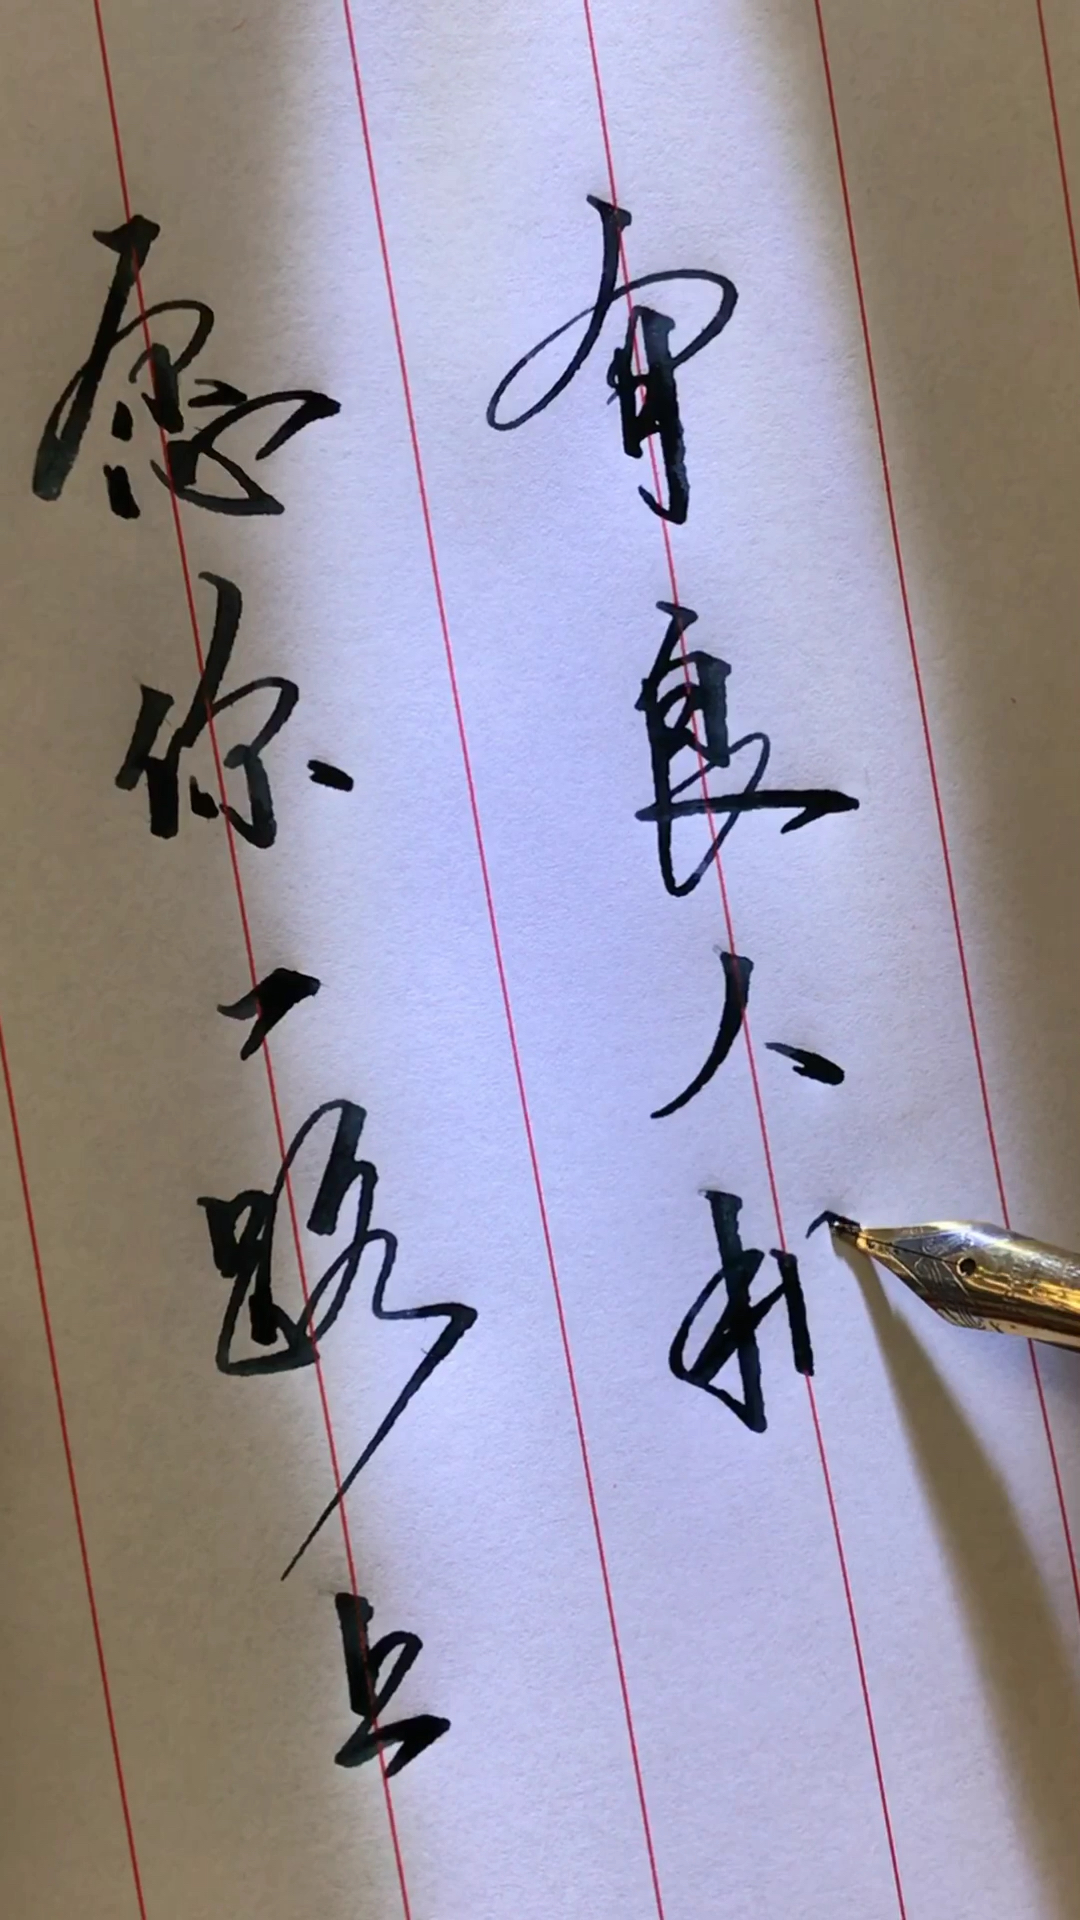 愿你一路上
有良人